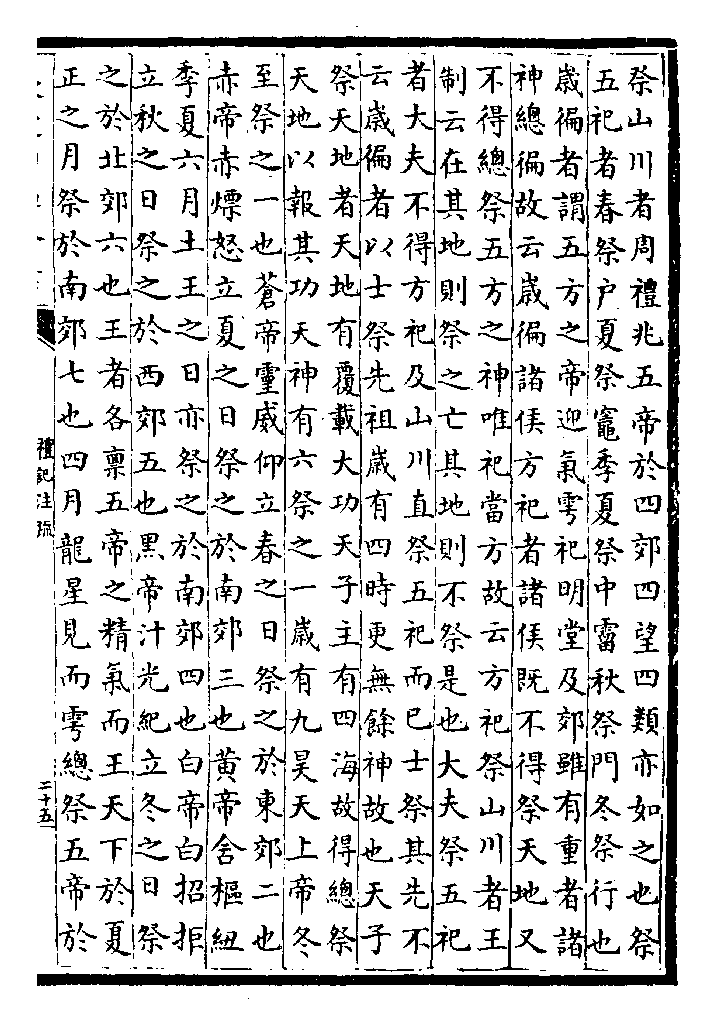 祭山川者周禮兆五帝於四郊四望四類亦如之也祭
五祀者春祭户夏祭竈季夏祭中霤秋祭門冬祭行也
歲徧者謂五方之帝迎氣雩祀明堂及郊雖有重者諸
神總徧故云歲徧諸侯方祀者諸侯既不得祭天地又
不得總祭五方之神唯祀當方故云方祀祭山川者王
制云在其地則祭之亡其地則不祭是也大夫祭五祀
者大夫不得方祀及山川直祭五祀而已士祭其先不
云歲徧者以士祭先祖歲有四時更無餘神故也天子
祭天地者天地有覆載大功天子主有四海故得總祭
天地以報其功天神有六祭之一歲有九昊天上帝冬
至祭之一也蒼帝靈威仰立春之日祭之於東郊二也
赤帝赤熛怒立夏之日祭之於南郊三也黃帝含樞紐
季夏六月土王之日亦祭之於南郊四也白帝白招拒
立秋之日祭之於西郊五也黑帝汁光紀立冬之日祭
之於北郊六也王者各禀五帝之精氣而王天下於夏
正之月祭於南郊七也四月龍星見而雩總祭五帝於
禮記注疏
二十五